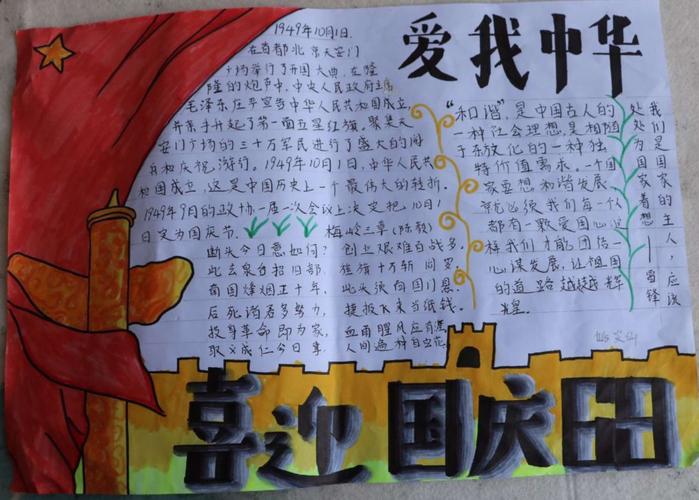 爱我中华
1949年10月1日,
在首都北京天安门
广场举行了开国大典,在隆
隆的炮声中,中央人民政府主席
毛泽东庄严宣告中华人民共和国成立,
并亲手升起了第一面五星红旗。聚集天
安门广场的三十万军民进行了盛大的阅
兵和庆祝游行。1949年10月1日,中华人民共
和国成立,这是中国历史上一个最伟大的转折。
1949年9月的政协一届一次会议上决定把10月1
日定为国庆节。
梅岭三章(陈毅)
断头今日意如何?
创业艰难百战多,
此去泉台招旧部,
旌旗十万斩阎罗。
南国烽烟正十年,
此头须向国门悬。
后死诸君多努力,
捷报飞来当纸钱。
投身革命即为家,
血雨腥风应有涯
取义成仁今日事,
人间遍种自由花
"和谐",是中国古人的
一种社会理想,是相随
于东放化的一种独
特价值需求。一个国
家要想和谐发展,
就必须我们每一个人
都有一颗爱国心,这
样我们才能团结一
心谋发展,让祖国
的道路越越辉
煌。
我们是国家的主人,应该
处处为国家着想——雷锋
喜迎国庆68